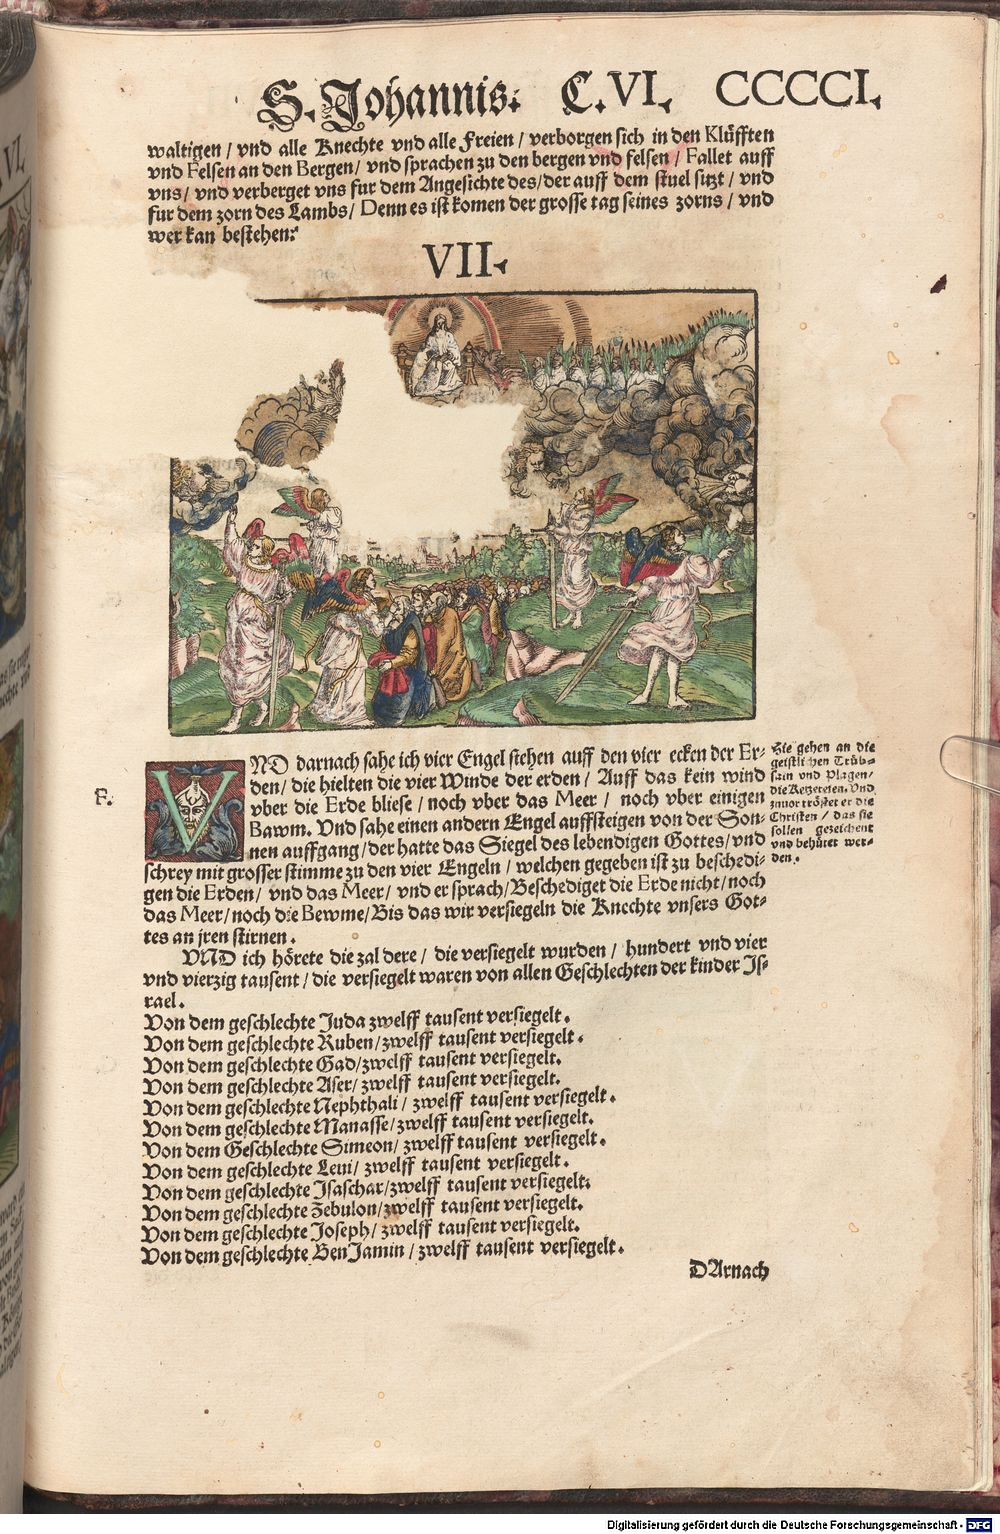 S. Johannis. C. VI. CCCCCI.
waltigen / vnd alle Knechte vnd alle Freien / verborgen sich in den Klüfften
vnd Felsen an den Bergen / vnd sprachen zu den bergen vnd felsen / Fallet auff
vns / vnd verberget vns fur dem Angesichte des / der auff dem stuel sitzt / vnd
fur dem zorn des Lambs / Denn es ist komen der grosse tag seines zorns / vnd
wer kan bestehen?
VII.
F.
VND darnach sahe ich vier Engel stehen auff den vier ecken der Er-
den / die hielten die vier Winde der erden / Auff das kein wind
vber die Erde bliese / noch vber das Meer / noch vber einigen
Bawm. Vnd sahe einen andern Engel auffsteigen von der Son-
nen auffgang / der hatte das Siegel des lebendigen Gottes / vnd
schrey mit grosser stimme zu den vier Engeln / welchen gegeben ist zu beschedi-
gen die Erden / vnd das Meer / vnd er sprach / Beschediget die Erde nicht / noch
das Meer / noch die Bewme / Bis das wir versiegeln die Knechte vnsers Got-
tes an jren stirnen.
VND ich hörete die zal dere / die versiegelt wurden / hundert vnd vier
vnd vierzig tausent / die versiegelt waren von allen Geschlechten der kinder Is-
rael.
Von dem geschlechte Juda zwelff tausent versiegelt.
Von dem geschlechte Ruben / zwelff tausent versiegelt.
Von dem geschlechte Gad / zwelff tausent versiegelt.
Von dem geschlechte Aser / zwelff tausent versiegelt.
Von dem geschlechte Nephthali / zwelff tausent versiegelt.
Von dem geschlechte Manasse / zwelff tausent versiegelt.
Von dem Geschlechte Simeon / zwelff tausent versiegelt.
Von dem geschlechte Leui / zwelff tausent versiegelt.
Von dem geschlechte Isaschar / zwelff tausent versiegelt.
Von dem geschlechte Zebulon / zwelff tausent versiegelt.
Von dem geschlechte Joseph / zwelff tausent versiegelt.
Von dem geschlechte BenJamin / zwelff tausent versiegelt.
DArnach
Hie gehen an die
geistlichen Trüb-
sain vnd Plagen /
die Ketzereien. Vnd
zuuor tröstet er die
Christen / das sie
sollen gezeichent
vnd behütet wer-
den.
Digitalisierung gefördert durch die Deutsche Forschungsgemeinschaft - DFG